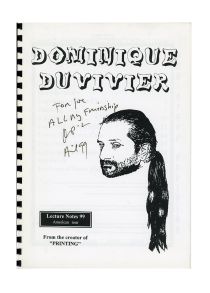 DOMINIQUE
DUVIVIER
For Joe
All My Friendship
Lecture Notes 99
American tour
From the creator of
"PRINTING"